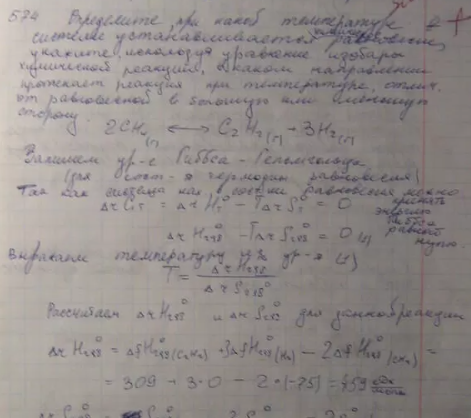 Определите, при какой температуре в
системе устанавливается химическое равновесие,
укажите, используя уравнение изобары
химической реакции, в каком направлении
протекает реакция при температуре, отлич.
от равновесной в большую или меньшую
сторону.
2CH₄(г) ⟷ C₂H₂(г) + 3H₂(г)
Запишем ур-е Гиббса - Гельмгольца
(для сост-я термодин. равновесия)
Так как система нах. в состоянии равновесия можно
принять
энергию
Гиббса
равной
нулю.
ΔrG°T = ΔrH°T - TΔrS°T = 0
ΔrH°298 - TΔrS°298 = 0 (1)
Выражаем температуру из ур-я (1)
T = ΔrH°298 / ΔrS°298
Рассчитаем ΔrH°298 и ΔrS°298 для данной реакции
ΔrH°298 = ΔfH°298(C₂H₂) + 3ΔfH°298(H₂) - 2ΔfH°298(CH₄) =